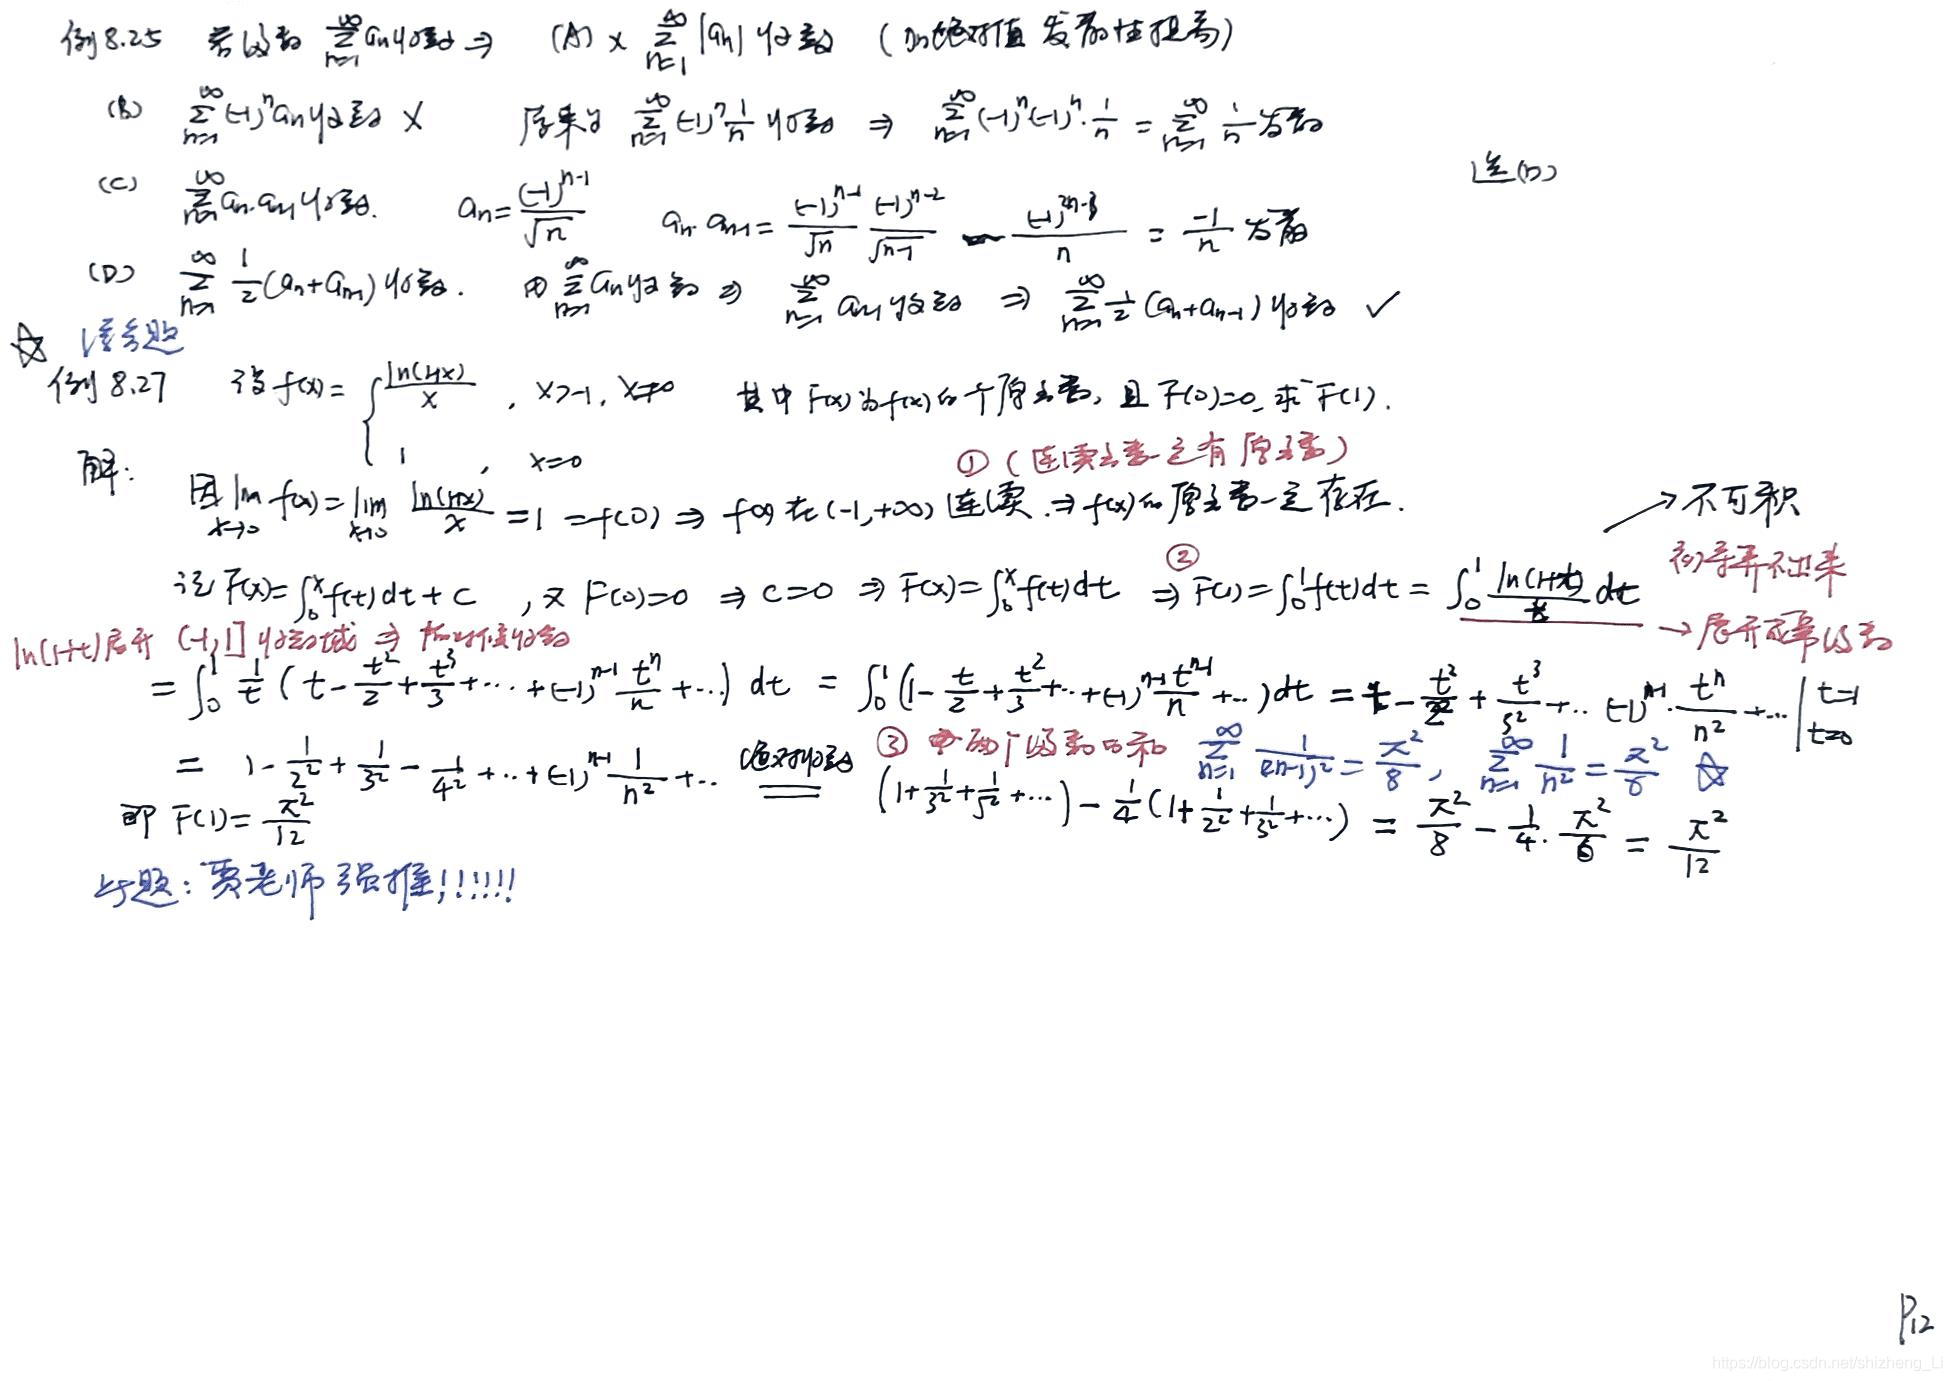 例8.25 若级数 ∑_{n=1}^∞ aₙ收敛 ⇒ (A) × ∑_{n=1}^∞ |aₙ| 收敛 (加绝对值 发散性提高)
(B) ∑_{n=1}^∞ (-1)ⁿaₙ收敛 × 原来为 ∑_{n=1}^∞ (-1)ⁿ 1/n 收敛 ⇒ ∑_{n=1}^∞ (-1)ⁿ(-1)ⁿ·1/n = ∑_{n=1}^∞ 1/n 发散
选(D)
(C) ∑_{n=1}^∞ aₙ·aₙ₊₁收敛. aₙ = (-1)^{n-1}/√n aₙ·aₙ₋₁ = (-1)^{n-1}/√n (-1)^{n-2}/√(n-1) ~ (-1)^{2n-3}/n = -1/n 发散
(D) ∑_{n=1}^∞ 1/2(aₙ+aₙ₊₁)收敛. 因 ∑_{n=1}^∞ aₙ收敛 ⇒ ∑_{n=1}^∞ aₙ₊₁收敛 ⇒ ∑_{n=1}^∞ 1/2(aₙ+aₙ₋₁)收敛 ✓
☆
例8.27 设f(x) = { ln(1+x)/x , x>-1, x≠0 其中F(x)为f(x)的一个原函数, 且F(0)=0, 求F(1).
1 , x=0
解:
①(连续函数一定有原函数)
因 lim_{x→0} f(x) = lim_{x→0} ln(1+x)/x = 1 = f(0) ⇒ f(x)在(-1,+∞)连续. ⇒ f(x)的原函数一定存在.
→不可积
②
初等弄不出来
记F(x) = ∫₀ˣ f(t)dt + C , 又 F(0)=0 ⇒ C=0 ⇒ F(x) = ∫₀ˣ f(t)dt ⇒ F(1) = ∫₀¹ f(t)dt = ∫₀¹ ln(1+t)/t dt
→展开成幂级数
ln(1+t)展开 (-1,1]收敛域 ⇒ 绝对收敛
= ∫₀¹ 1/t (t - t²/2 + t³/3 + ··· + (-1)^{n-1} tⁿ/n + ···) dt = ∫₀¹ (1 - t/2 + t²/3 + ··· + (-1)^{n-1} t^{n-1}/n + ···) dt = t - t²/2² + t³/3² + ··· (-1)^{n-1}·tⁿ/n² + ··· | t=1 t=0
③ 两个级数的和 ∑_{n=1}^∞ 1/(2n-1)² = π²/8, ∑_{n=1}^∞ 1/n² = π²/6 ☆
= 1 - 1/2² + 1/3² - 1/4² + ··· + (-1)^{n-1} 1/n² + ··· 绝对收敛 == (1 + 1/3² + 1/5² + ···) - 1/4 (1 + 1/2² + 1/3² + ···) = π²/8 - 1/4·π²/6 = π²/12
即 F(1) = π²/12
上题: 贾老师强推!!!!!!
P12
https://blog.csdn.net/shizheng_Li